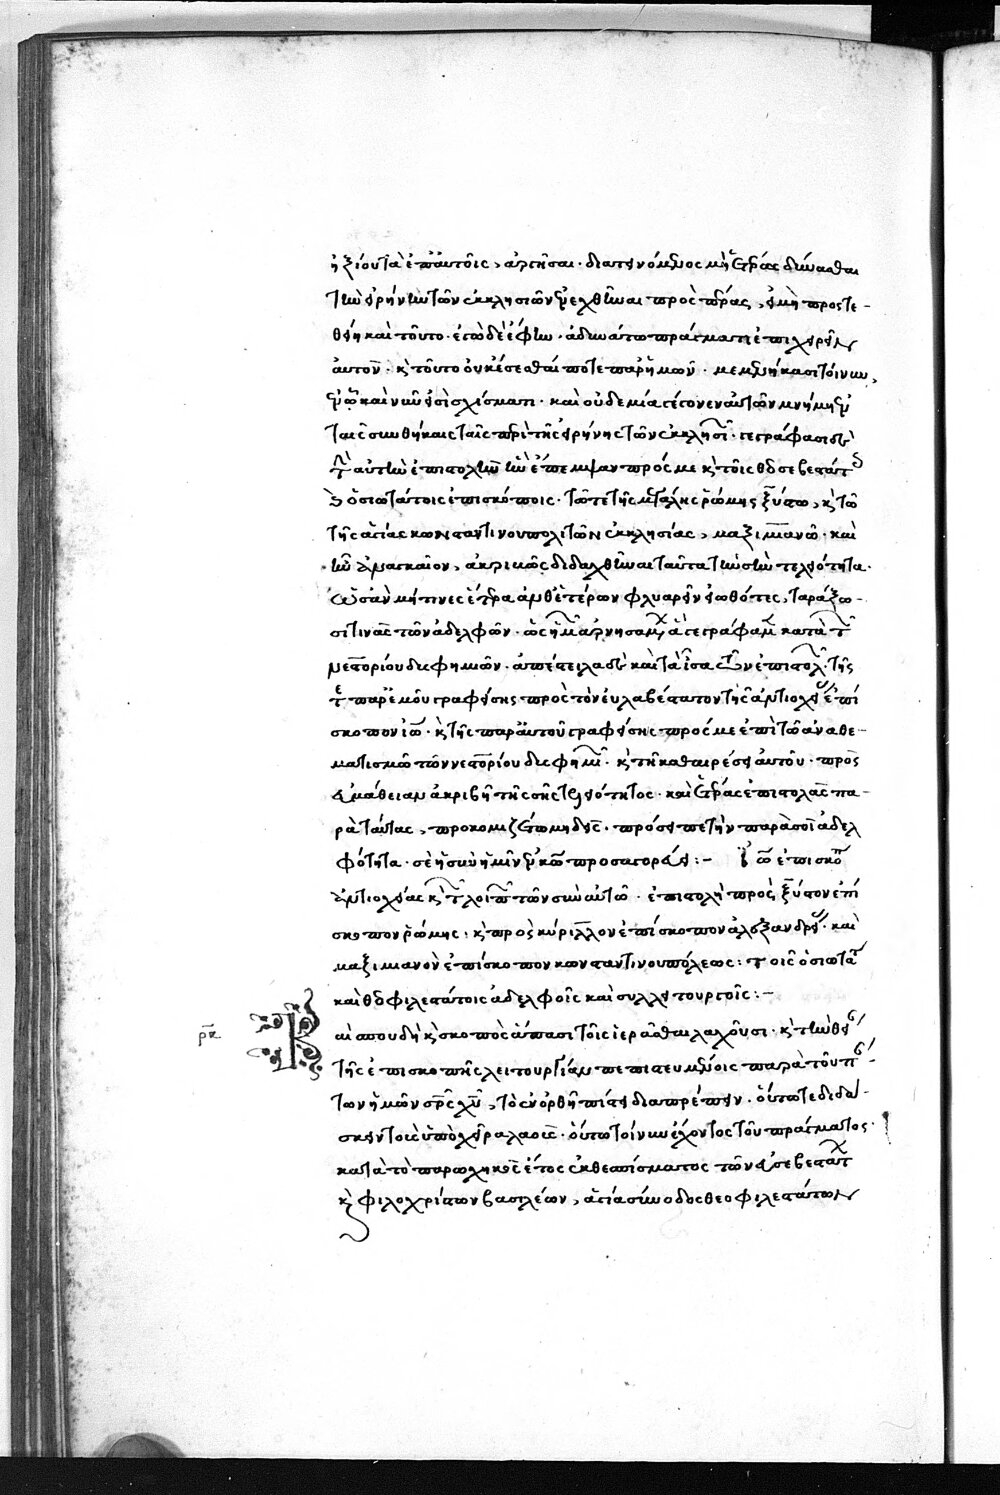 ἠξίουν τὰ ἐπ' αὐτοῖς, ἀρτῆσαι. διατεινόμενος μὴ ἑτέρως δύνασθαι
τὴν εἰρήνην τῶν ἐκκλησιῶν ἐνεχθῆναι πρὸς πέρας, εἰ μὴ προστε-
θείη καὶ τοῦτο. ἐγὼ δὲ ἔφην. ἀδυνάτω πράγματι ἐπιχειρεῖν
αὐτόν. καὶ τοῦτο οὐκ ἔσεσθαί ποτε παρ' ἡμῶν. μεμενήκασι τοίνυν,
ἐν ᾧ καὶ νῦν εἰσὶ σχίσματι. καὶ οὐδεμία γέγονεν αὐτῶν μνήμη ἐν
ταῖς συνθήκαις ταῖς περὶ τῆς εἰρήνης τῶν ἐκκλησιῶν. γεγράφασι δὲ
τὴν αὐτὴν ἐπιστολὴν ἣν ἔπεμψαν πρός με καὶ τοῖς θεοσεβεστάτοις
καὶ ὁσιωτάτοις ἐπισκόποις. τῶ τε τῆς μεγάλης ῥώμης ξύστω, καὶ τῶ
τῆς ἁγίας κωνσταντινουπολιτῶν ἐκκλησίας, μαξιμιανῶ. καὶ
ἦν ἀναγκαῖον, ἀκριβῶς διδαχθῆναι ταῦτα τὴν σὴν τελειότητα.
ὡς ἂν μή τινες ἕτερα ἀνθ' ἑτέρων φλυαρεῖν εἰωθότες, ταράξω-
σί τινας τῶν ἀδελφῶν. ὡς ἡμῶν ἀρνησαμένων, ἃ γεγράφαμεν κατὰ τῶν
νεστορίου δυσφημιῶν. ἀπέστειλα δὲ καὶ τὰ ἴσα τῶν ἐπιστολῶν. τῆς
τε παρ' ἐμοῦ γραφείσης πρὸς τὸν εὐλαβέστατον τῆς ἀντιοχείας ἐπί-
σκοπον ἰωάννην. καὶ τῆς παρ' αὐτοῦ γραφείσης πρός με ἐπὶ τῶ ἀναθε-
ματισμῶ τῶν νεστορίου δυσφημιῶν. καὶ τῆ καθαιρέσει αὐτοῦ. πρὸς
εὐμάθειαν ἀκριβῆ τῆς σῆς τελειότητος. καὶ ἑτέρας ἐπιστολὰς πα-
ρὰ ταύτας, προκομιζέτω μηδείς. πρόσειπε τὴν παρὰ σοὶ ἀδελ-
φότητα. σὲ ἡ σὺν ἡμῖν ἐν κυρίω προσαγορεύει:– ἰωάννου ἐπισκόπου
ἀντιοχείας καὶ τῶν λοιπῶν τῶν σὺν αὐτῶ. ἐπιστολὴ πρὸς ξύστον ἐπί-
σκοπον ῥώμης. καὶ πρὸς κύριλλον ἐπίσκοπον ἀλεξανδρείας. καὶ
μαξιμιανὸν ἐπίσκοπον κωνσταντινουπόλεως: τοῖς ὁσιωτάτοις
καὶ θεοφιλεστάτοις ἀδελφοῖς καὶ συλλειτουργοῖς:–
ρκ
Καὶ σπουδὴ καὶ σκοπὸς ἅπασι τοῖς ἱερᾶσθαι λαχοῦσι. καὶ τὴν θείαν
τῆς ἐπισκοπῆς λειτουργίαν πεπιστευμένοις παρὰ τοῦ πάν-
των ἡμῶν σωτῆρος χριστοῦ, τὸ ἐν ὀρθῆ πίστει διαπρέπειν. οὕτω τε διδά-
σκειν τοὺς ὑπὸ χεῖρα λαούς. οὕτω τοίνυν ἔχοντος τοῦ πράγματος.
κατὰ τὸ παρωχηκὸς ἔτος ἐκ θεσπίσματος τῶν εὐσεβεστάτων
καὶ φιλοχρίστων βασιλέων, ἁγία σύνοδος θεοφιλεστάτων